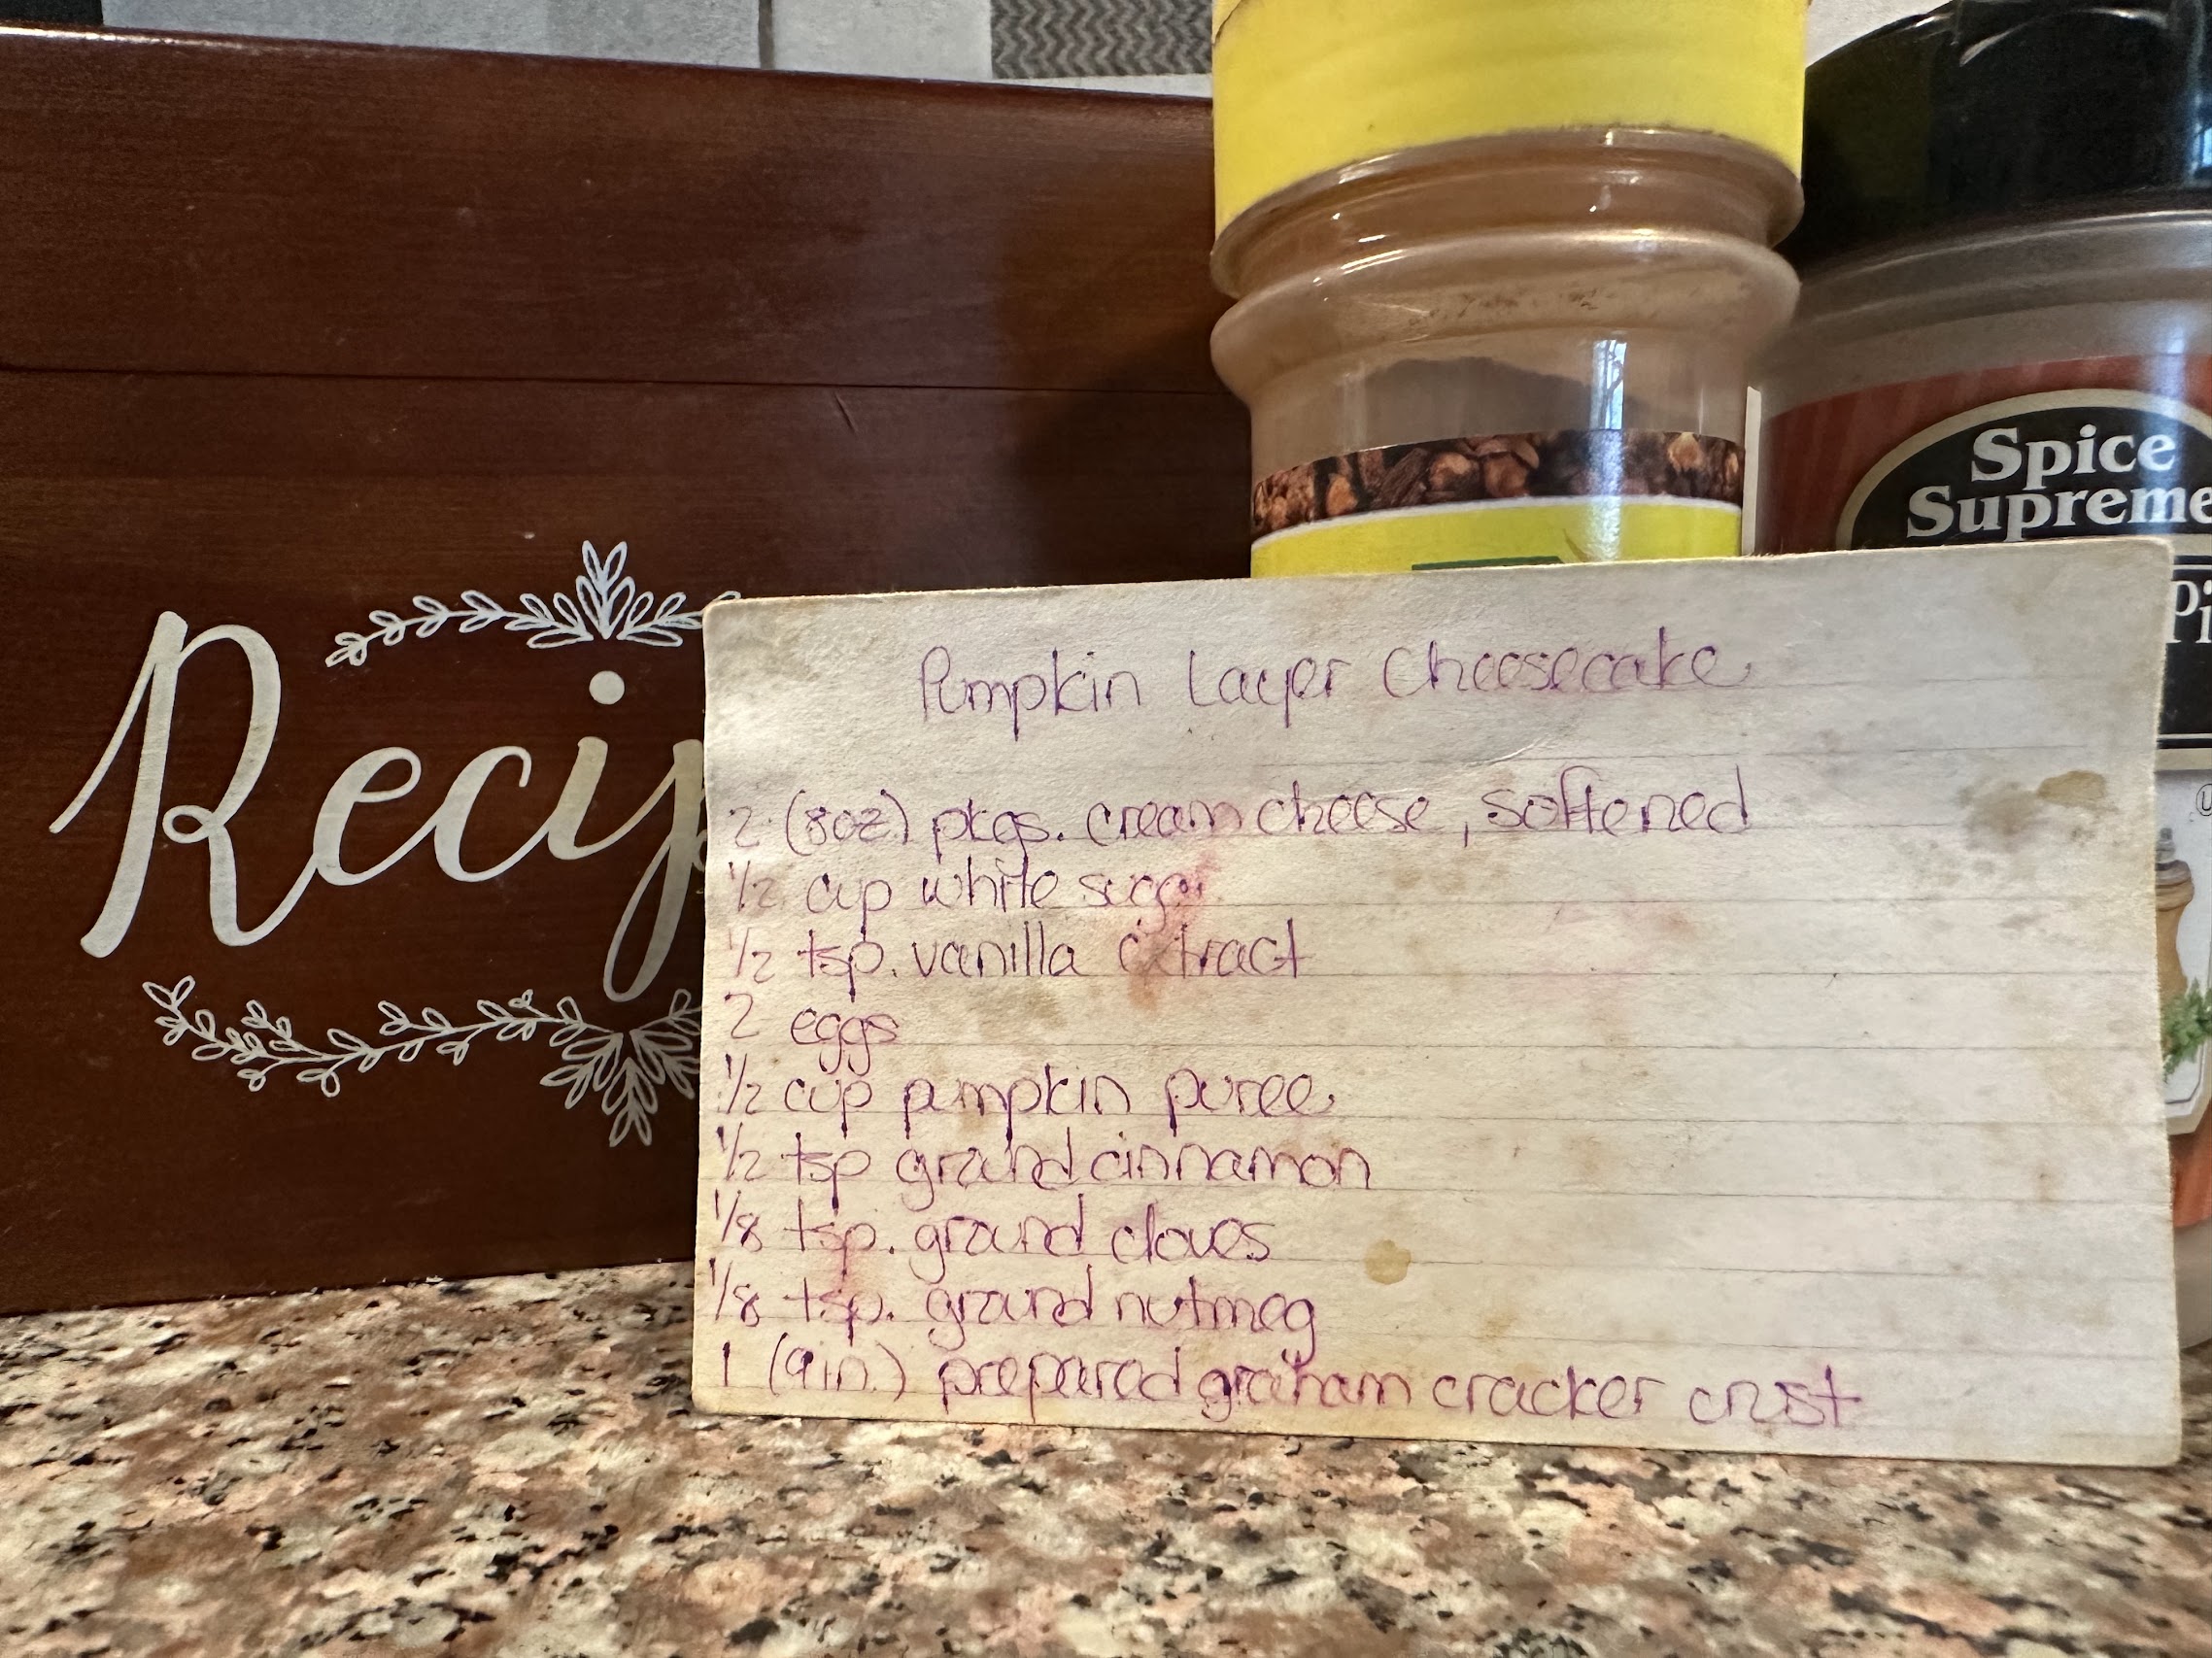 Recip
Spice
Supreme
Pi
Pumpkin Layer Cheesecake
2 (8oz) pkgs. cream cheese, softened
1/2 cup white sugar
1/2 tsp. vanilla extract
2 eggs
1/2 cup pumpkin puree
1/2 tsp ground cinnamon
1/8 tsp. ground cloves
1/8 tsp. ground nutmeg
1 (9in.) prepared graham cracker crust